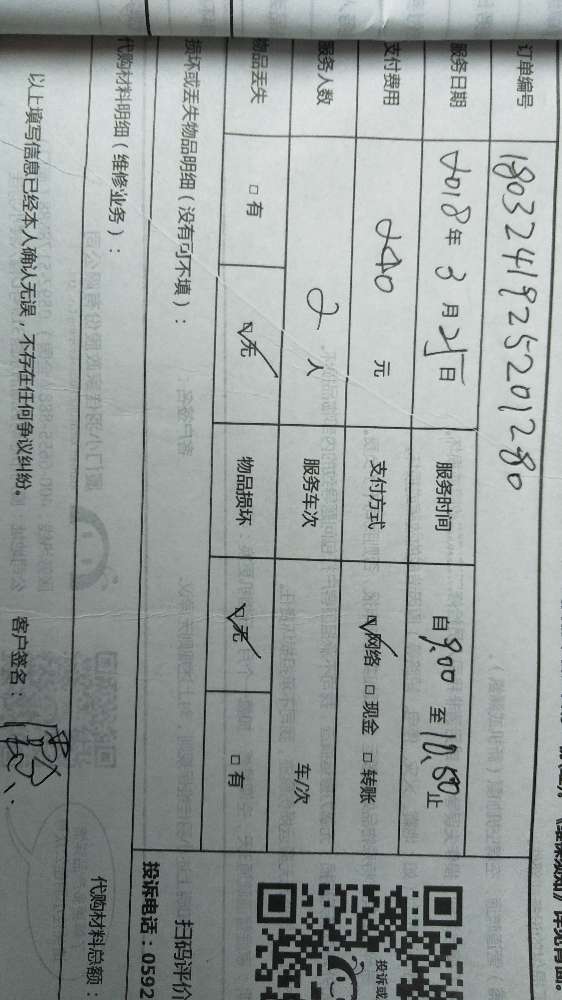 订单编号 1803241925201280
服务日期 2018年3月25日 服务时间 自9.00 至12.50止
支付费用 240 元 支付方式 ☑网络 □现金 □转账
服务人数 2 人 服务车次 车/次
物品丢失 □有 ☑无 物品损坏 ☑无 □有
损坏或丢失物品明细（没有可不填）：
代购材料明细（维修业务）：
代购材料总额：
以上填写信息已经本人确认无误，不存在任何争议纠纷。 客户签名：
扫码评价
投诉电话：0592
投诉或